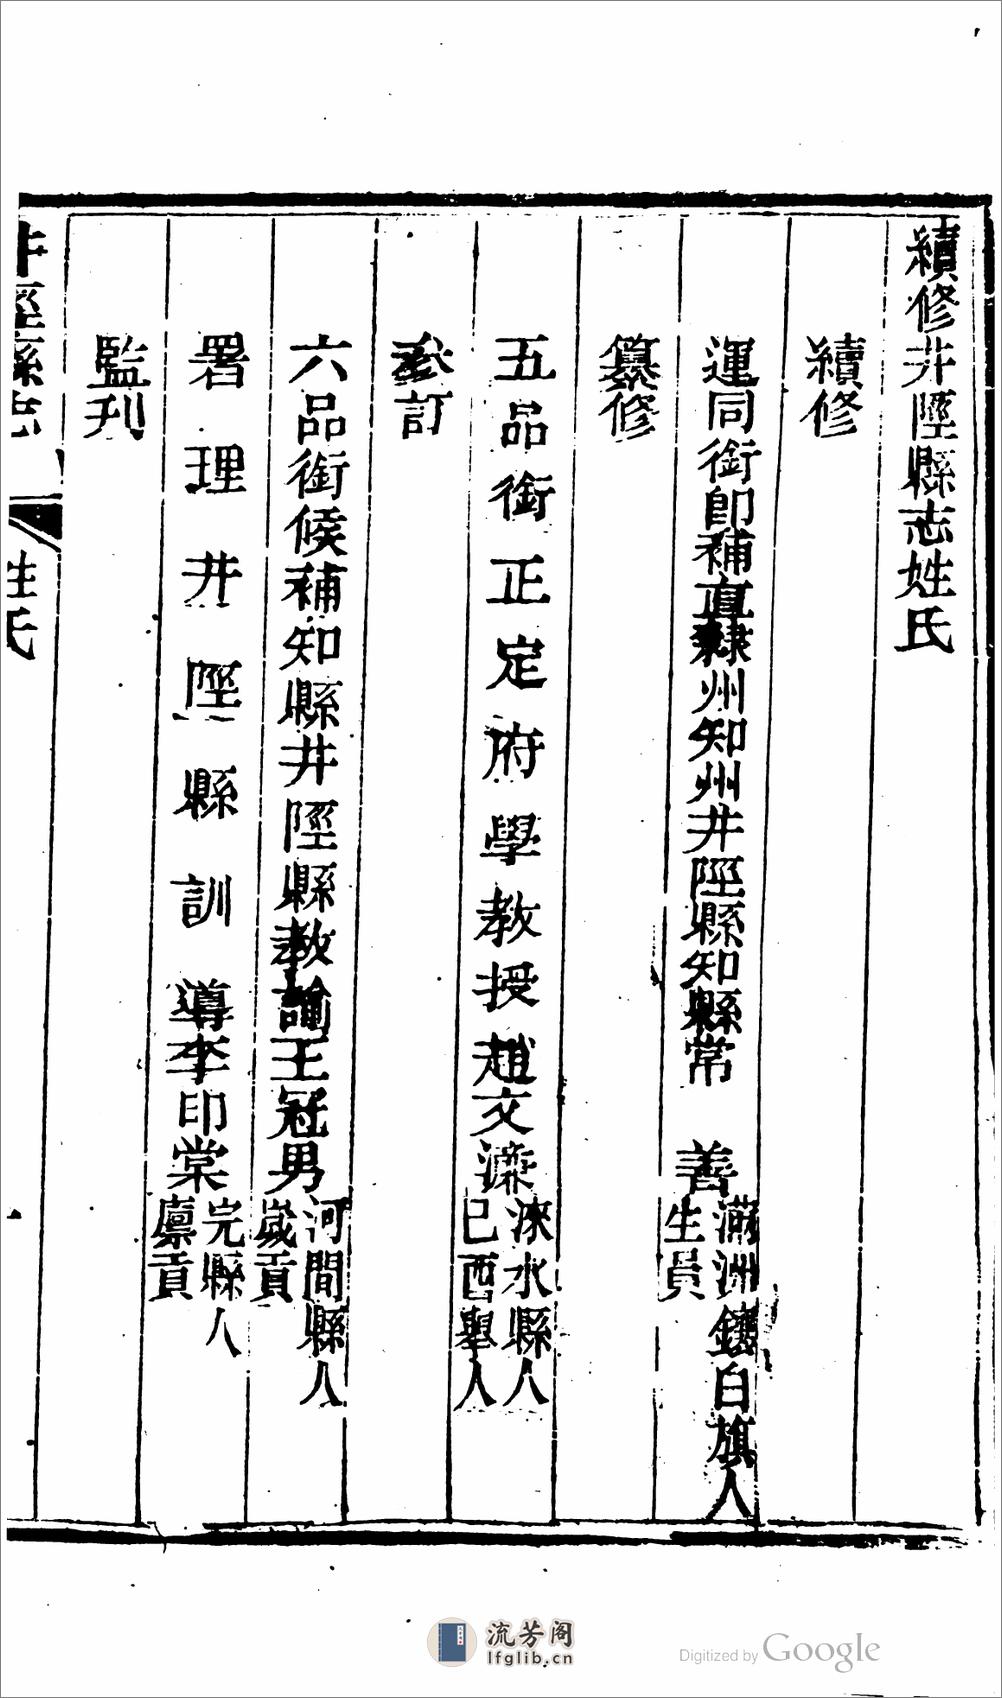 續修井陘縣志姓氏
續修
運同銜卽補直隸州知州井陘縣知縣常 善滿洲鑲白旗人生員
纂修
五品銜正定府學教授趙文濂淶水縣人己酉舉人
叅訂
六品銜候補知縣井陘縣教諭王冠男河間縣人歲貢
署理井陘縣訓導李印棠完縣人廩貢
監刋
井陘縣志 姓氏
流芳阁
lfglib.cn
Digitized by Google